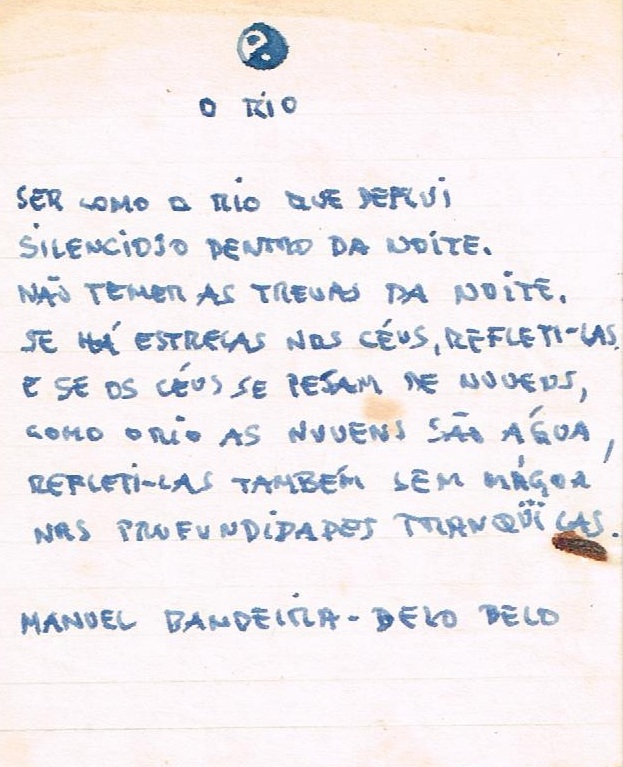 O RIO
SER COMO O RIO QUE DEFLUI
SILENCIOSO DENTRO DA NOITE.
NÃO TEMER AS TREVAS DA NOITE.
SE HÁ ESTRELAS NOS CÉUS, REFLETI-LAS.
E SE OS CÉUS SE PEJAM DE NUVENS,
COMO O RIO AS NUVENS SÃO ÁGUA,
REFLETI-LAS TAMBÉM SEM MÁGOA
NAS PROFUNDIDADES TRANQÜILAS.
MANUEL BANDEIRA - BELO BELO